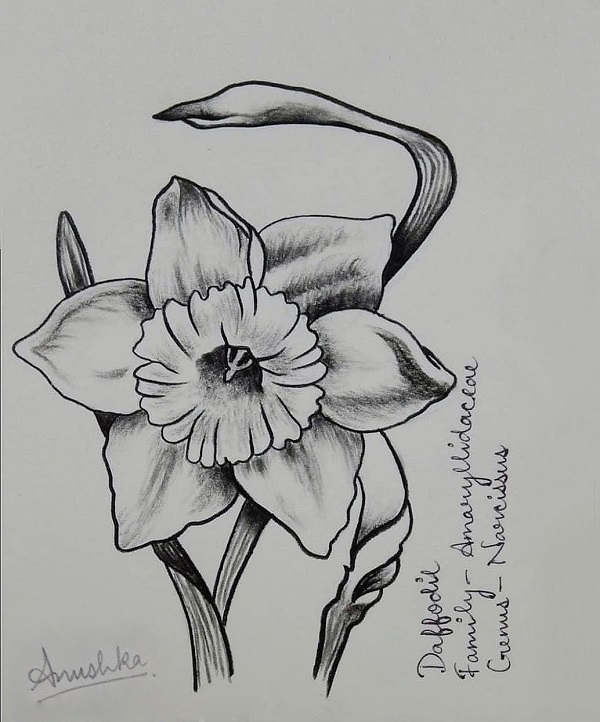 Daffodil
Family - Amaryllidaceae
Genus - Narcissus
Anushka.